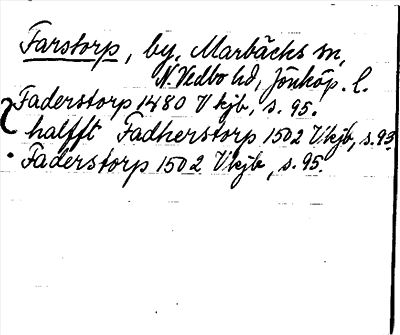 Farstorp, by, Marbäcks sn,
N. Vedbo hd, Jönköp. l.
Faderstorp 1480 Vkjb, s. 95.
halfft Fadherstorp 1502 Vkjb, s. 93
Faderstorp 1502 Vkjb, s. 95.